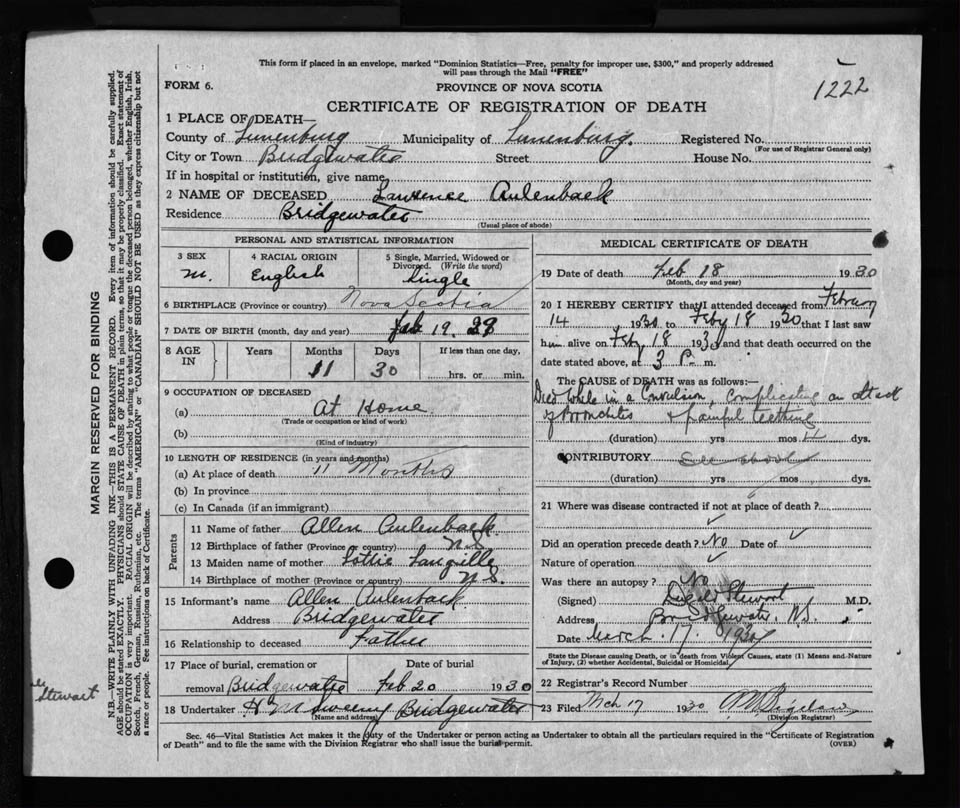 This form if placed in an envelope, marked "Dominion Statistics—Free, penalty for improper use, $300," and properly addressed
will pass through the Mail "FREE"
1222
FORM 6.
PROVINCE OF NOVA SCOTIA
CERTIFICATE OF REGISTRATION OF DEATH
1 PLACE OF DEATH—
County of Lunenburg Municipality of Lunenburg. Registered No.
(For use of Registrar General only)
City or Town Bridgewater Street House No.
If in hospital or institution, give name
2 NAME OF DECEASED Lawrence Aulenback
Residence Bridgewater
(Usual place of abode)
PERSONAL AND STATISTICAL INFORMATION
3 SEX
M.
4 RACIAL ORIGIN
English
5 Single, Married, Widowed or
Divorced. (Write the word)
Single
6 BIRTHPLACE (Province or country) Nova Scotia
7 DATE OF BIRTH (month, day and year) Feb 19. 29
8 AGE IN
Years
Months
11
Days
30
If less than one day,
hrs. or min.
9 OCCUPATION OF DECEASED
(a) At Home.
(Trade or occupation or kind of work)
(b)
(Kind of industry)
10 LENGTH OF RESIDENCE (in years and months)
(a) At place of death 11 Months
(b) In province
(c) In Canada (if an immigrant)
Parents
11 Name of father Allen Aulenback
12 Birthplace of father (Province or country) N.S.
13 Maiden name of mother Lottie Langille
14 Birthplace of mother (Province or country) N.S.
15 Informant's name Allen Aulenback
Address Bridgewater
16 Relationship to deceased Father
17 Place of burial, cremation or
removal Bridgewater
Date of burial
Feb 20 1930
18 Undertaker H M Sweeny Bridgewater
(Name and address)
MEDICAL CERTIFICATE OF DEATH
19 Date of death Feb 18 1930
(Month, day and year)
20 I HEREBY CERTIFY that I attended deceased from February
14 1930 to Feby 18 1930 that I last saw
him alive on Feby 18 1930 and that death occurred on the
date stated above, at 3 P. m.
The CAUSE of DEATH was as follows:—
Died while in a Convulsion, complicating an attack
of bronchitis & painful teething
(duration) yrs mos dys.
CONTRIBUTORY See above
(duration) yrs mos dys.
21 Where was disease contracted if not at place of death?
Did an operation precede death? No Date of
Nature of operation
Was there an autopsy? No
(Signed) Stewart M.D.
Address Bridgewater, N.S.
Date March. 17. 1930
State the Disease causing Death, or in death from Violent Causes, state (1) Means and Nature
of Injury, (2) whether Accidental, Suicidal or Homicidal.
22 Registrar's Record Number
23 Filed Mch 17 1930
(Division Registrar)
Sec. 46—Vital Statistics Act makes it the duty of the Undertaker or person acting as Undertaker to obtain all the particulars required in the "Certificate of Registration
of Death" and to file the same with the Division Registrar who shall issue the burial permit.
(OVER)
MARGIN RESERVED FOR BINDING
N.B.—WRITE PLAINLY WITH UNFADING INK—THIS IS A PERMANENT RECORD. Every item of information should be carefully supplied.
AGE should be stated EXACTLY. PHYSICIANS should STATE CAUSE OF DEATH in plain terms, so that it may be properly classified. Exact statement of
OCCUPATION is very important. RACIAL ORIGIN will be described by stating to what people or tongue the deceased person belonged, whether English, Irish,
Scotch, French, German, Russian, Ruthenian, etc. The terms "AMERICAN" or "CANADIAN" SHOULD NOT BE USED as they express citizenship but not
a race or people. See instructions on back of Certificate.
Stewart